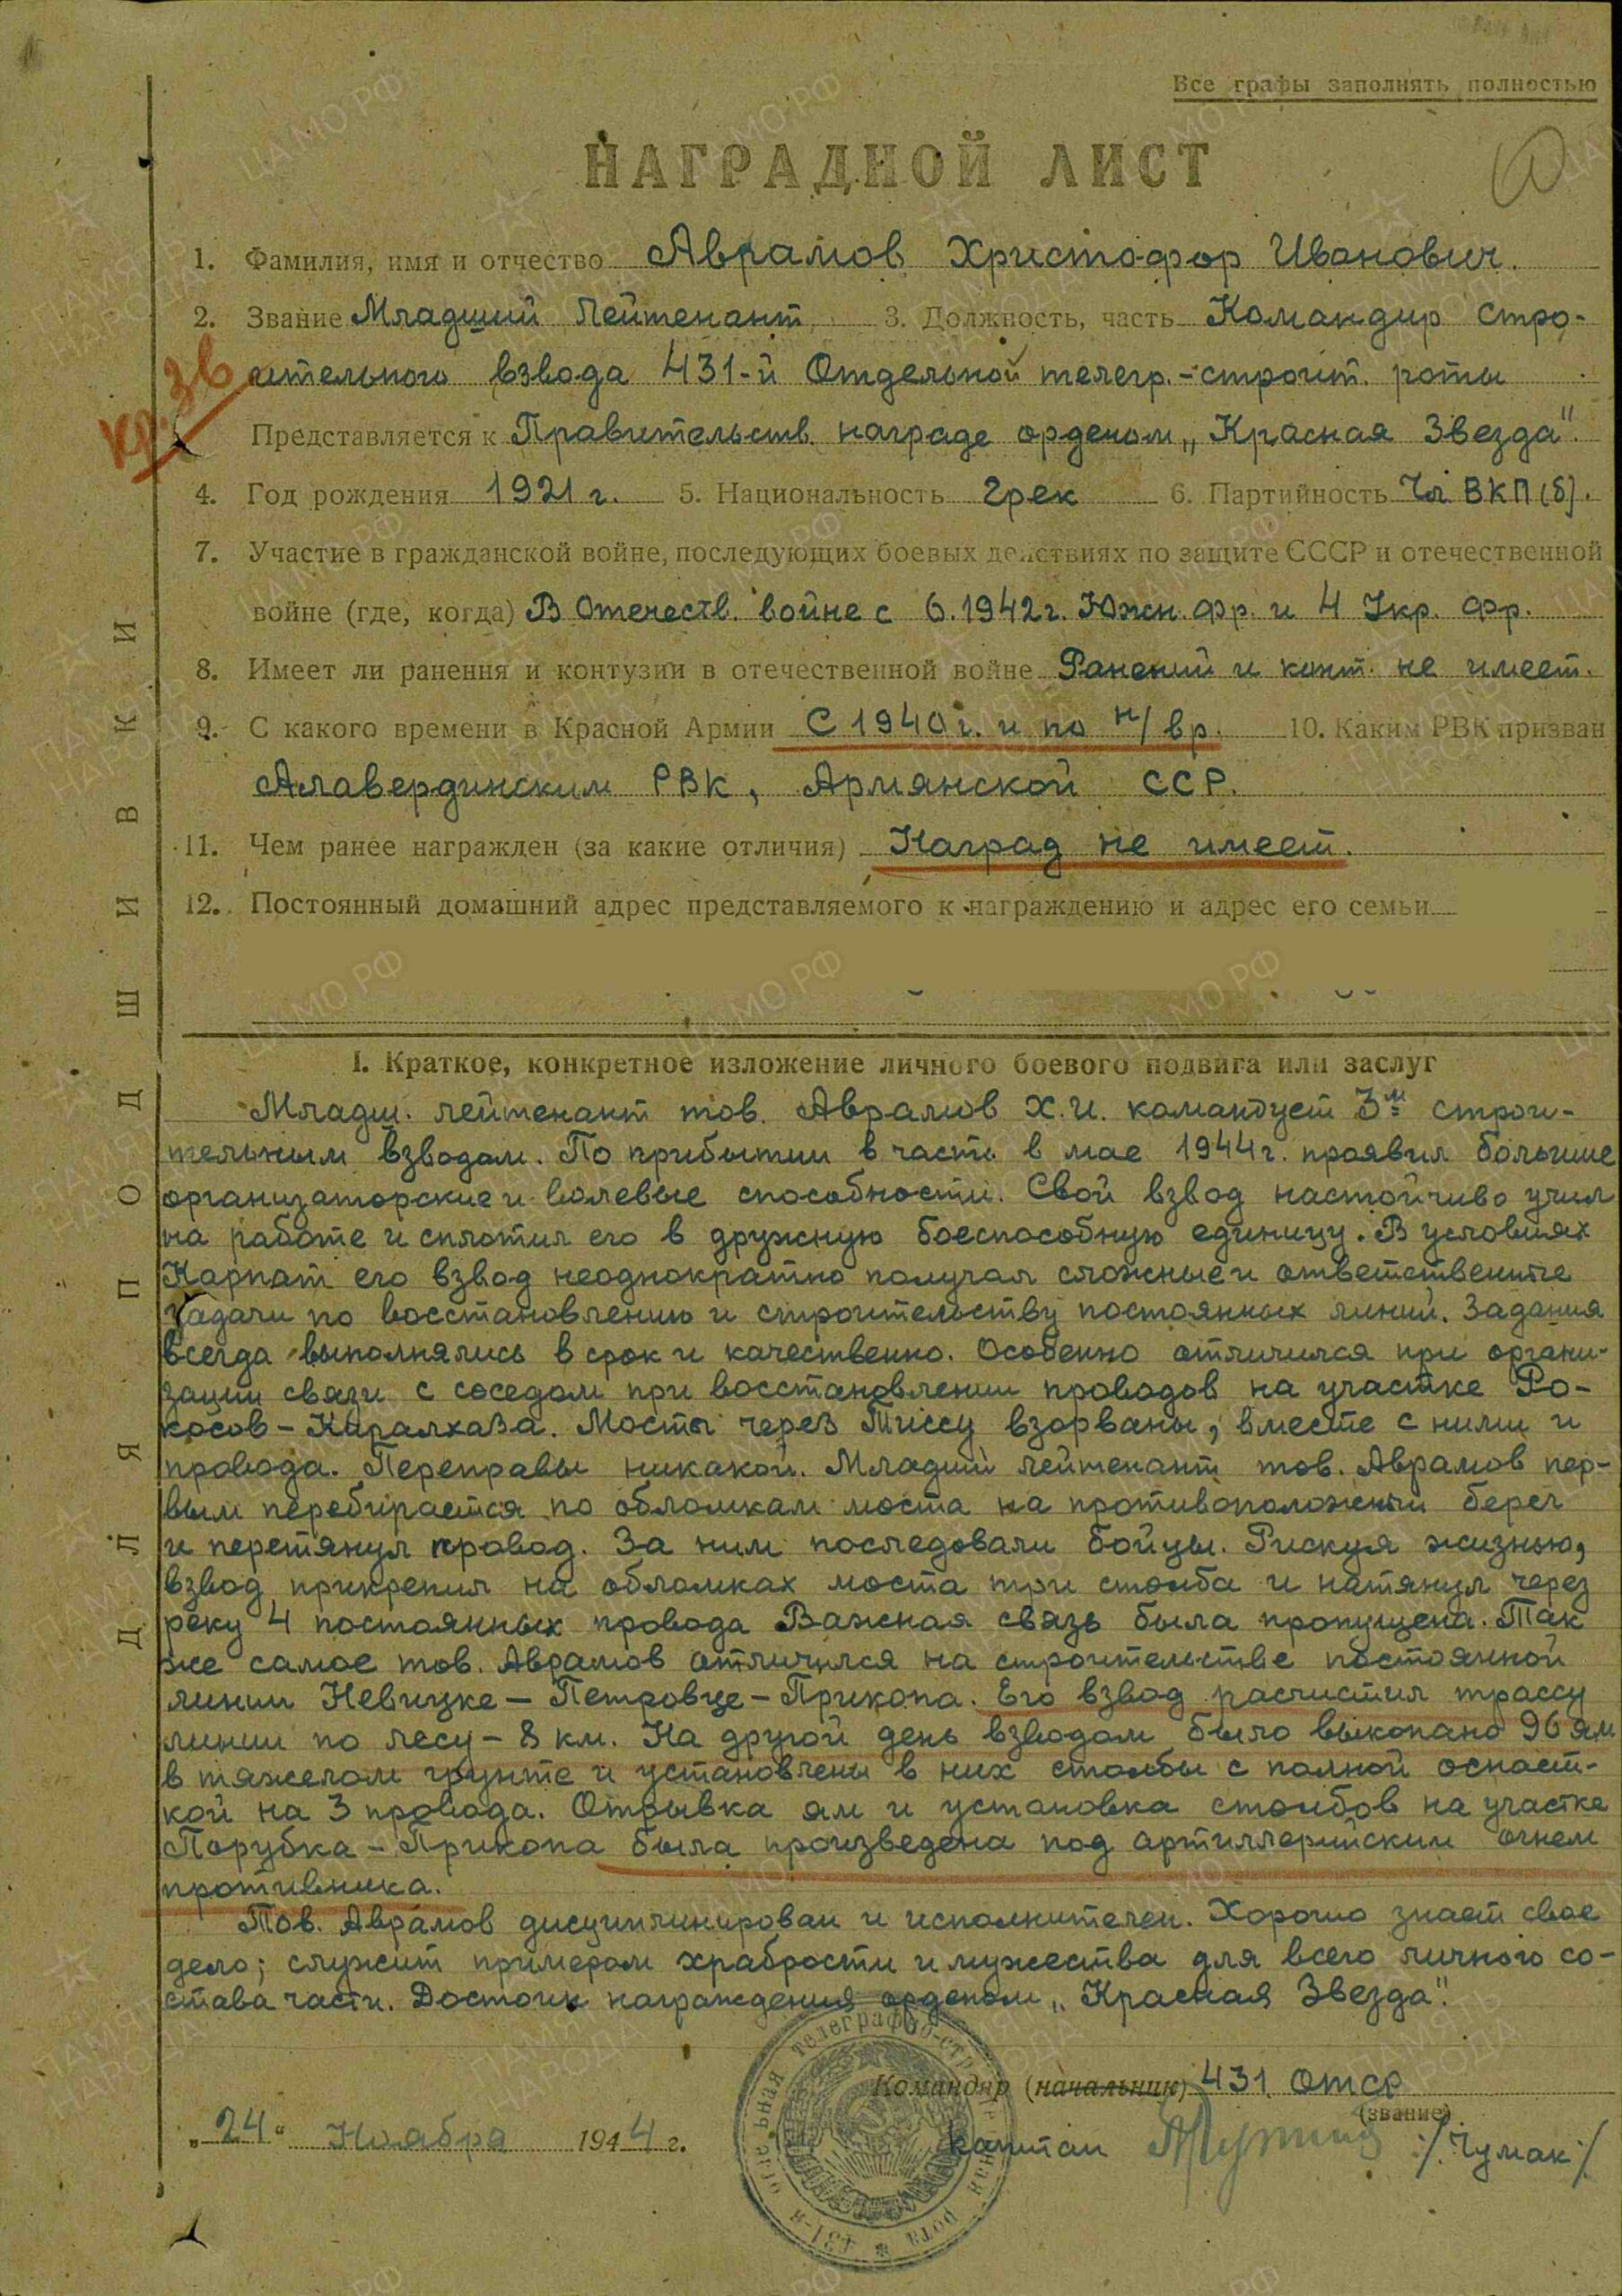 Все графы заполнять полностью
НАГРАДНОЙ ЛИСТ
1. Фамилия, имя и отчество Аврамов Христофор Иванович.
2. Звание Младший Лейтенант 3. Должность, часть Командир стро-
ительного взвода 431-й Отдельной телегр.-строит. роты
Кр. Зв
Представляется к Правительств. награде орденом „Красная Звезда".
4. Год рождения 1921 г. 5. Национальность Грек 6. Партийность Чл ВКП(б).
7. Участие в гражданской войне, последующих боевых действиях по защите СССР и отечественной
войне (где, когда) В Отечеств. войне с 6.1942г. Южн. фр. и 4 Укр. фр.
8. Имеет ли ранения и контузии в отечественной войне Ранений и конт. не имеет.
9. С какого времени в Красной Армии С 1940 г. и по н/вр. 10. Каким РВК призван
Алавердинским РВК, Армянской ССР.
11. Чем ранее награжден (за какие отличия) Наград не имеет.
12. Постоянный домашний адрес представляемого к награждению и адрес его семьи
ДЛЯ ПОДШИВКИ
I. Краткое, конкретное изложение личного боевого подвига или заслуг
Младш. лейтенант тов. Аврамов Х.И. командует 3м строи-
тельным взводом. По прибытии в часть в мае 1944г. проявил большие
организаторские и волевые способности. Свой взвод настойчиво учил
на работе и сплотил его в дружную боеспособную единицу. В условиях
Карпат его взвод неоднократно получал сложные и ответственные
задачи по восстановлению и строительству постоянных линий. Задания
всегда выполнялись в срок и качественно. Особенно отличился при органи-
зации связи с соседом при восстановлении проводов на участке Ро-
косов - Киралхаза. Мосты через Тиссу взорваны, вместе с ними и
провода. Переправы никакой. Младший лейтенант тов. Аврамов пер-
вым перебирается по обломкам моста на противоположный берег
и перетянул провод. За ним последовали бойцы. Рискуя жизнью,
взвод прикрепил на обломках моста три столба и натянул через
реку 4 постоянных провода Важная связь была пропущена. Так
же самое тов. Аврамов отличился на строительстве постоянной
линии Невицке - Петровце - Прикопа. Его взвод расчистил трассу
линии по лесу - 8 км. На другой день взводом было выкопано 96 ям
в тяжелом грунте и установлены в них столбы с полной оснаст-
кой на 3 провода. Отрывка ям и установка столбов на участке
Порубка - Прикопа была произведена под артиллерийским огнем
противника.
Тов. Аврамов дисциплинирован и исполнителен. Хорошо знает свое
дело; служит примером храбрости и мужества для всего личного со-
става части. Достоин награждения орденом „Красная Звезда".
Командир (начальник) 431 ОТСР
(звание)
„24" Ноября 1944 г.
капитан /Чумак/
431-я отдельная телеграфно-строительная рота
ЦАМО РФ
ПАМЯТЬ НАРОДА